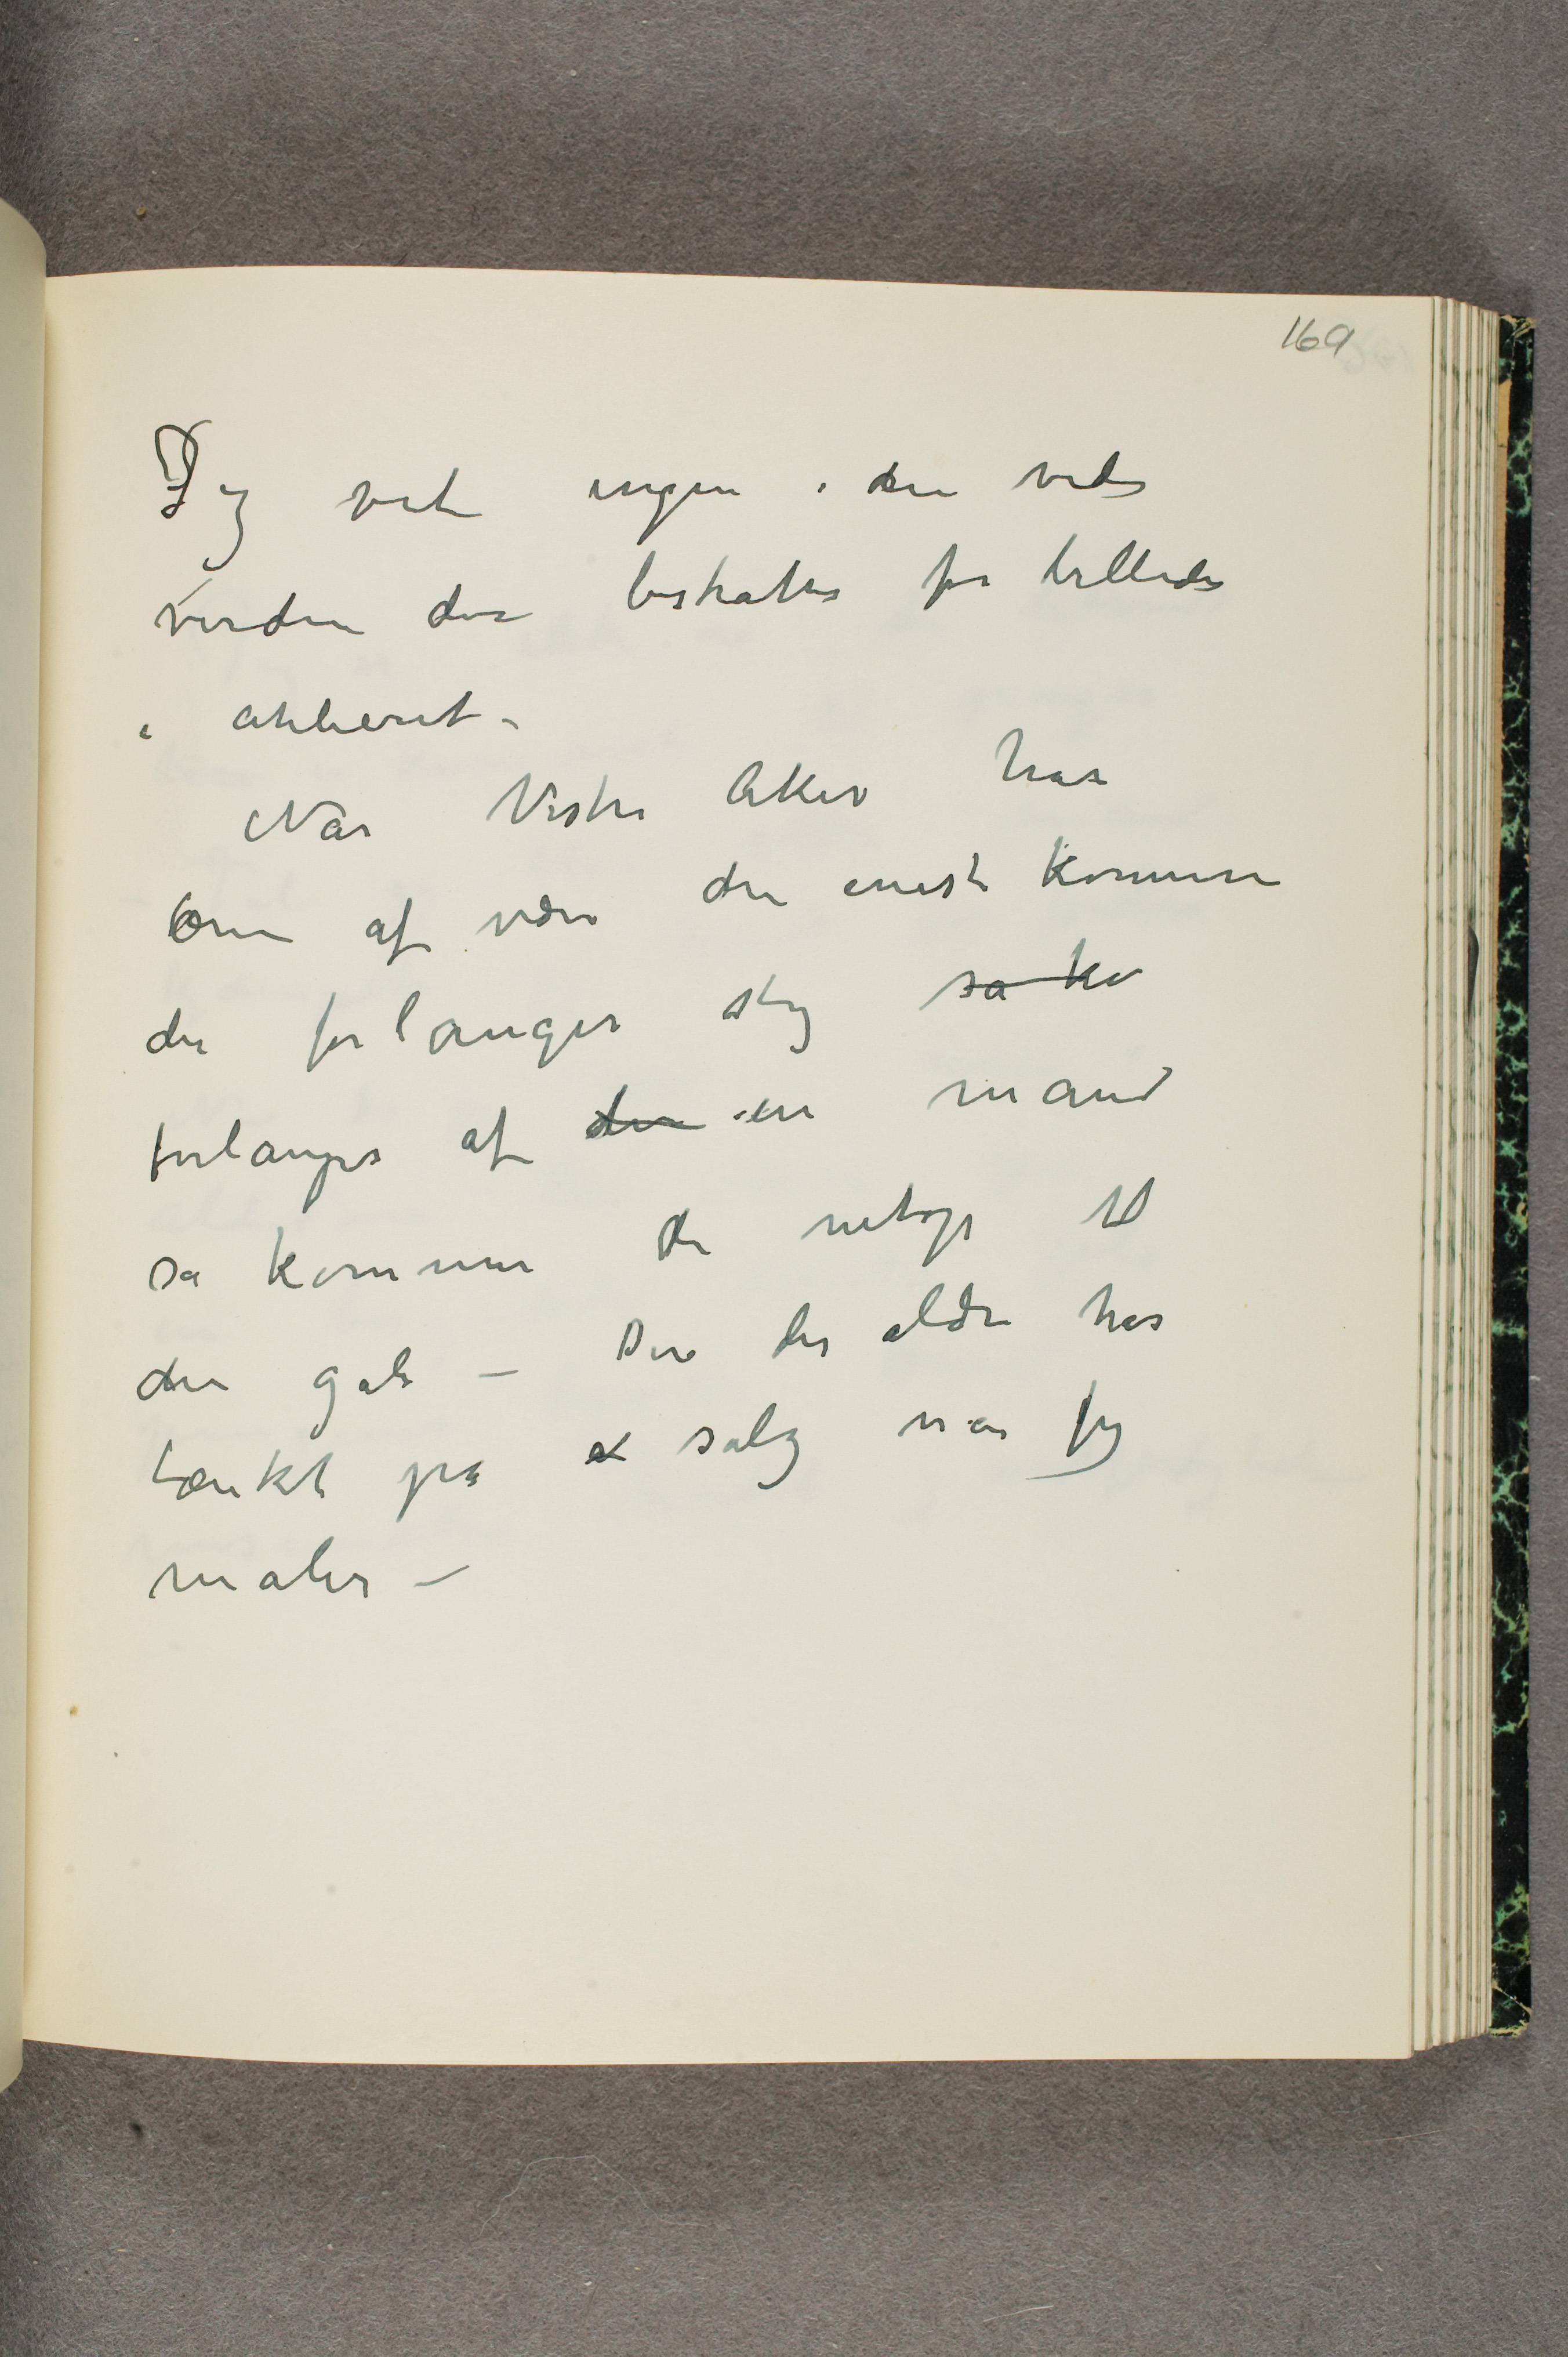 169
Jeg vet ingen i den vide
verden der beskattes for billeder
i atelieret –
Når Vestre Aker har
æren af være den eneste kommune
der forlanger slig så ko
forlanges af den en mand
så kommer de netop til
den gale – Den der aldri har
tænkt på at salg når jeg
maler –